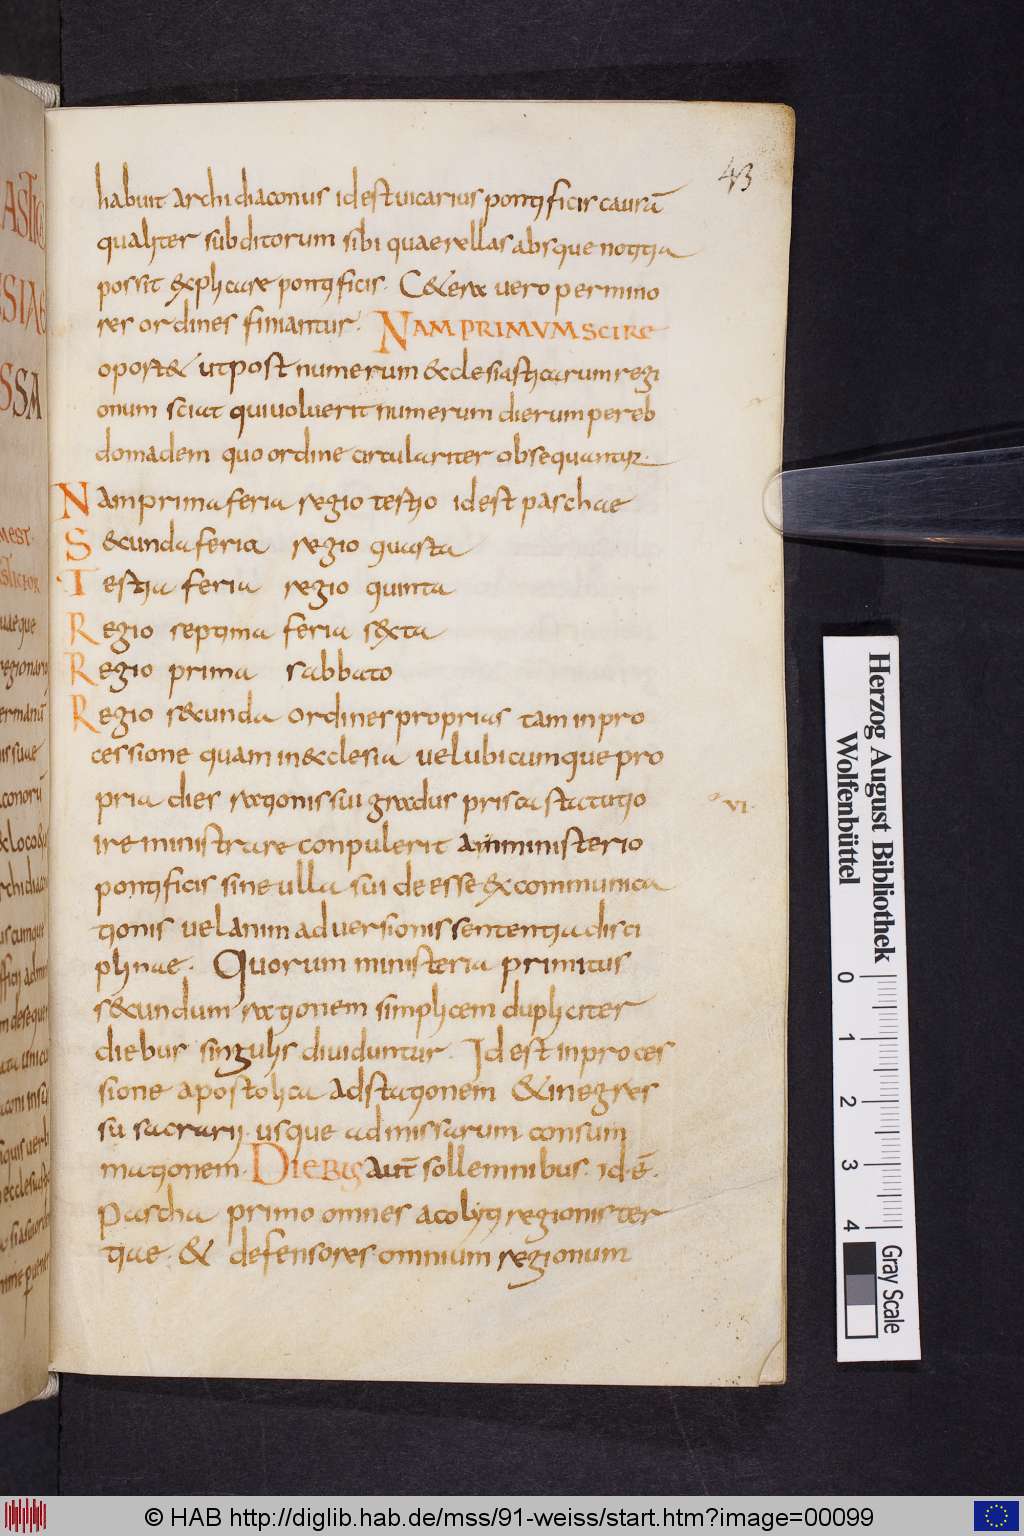 43
habuit archidiaconus idest uicarius pontificis caurū
qualiter subditorum sibi quaerellas absque notitia
possit explicare pontificis. Cetera uero per mino
res ordines finiantur. NAM PRIMVM SCIRE
oportet ut post numerum ecclesiasticarum regi
onum sciat qui uoluerit numerum dierum per eb
domadem quo ordine circulariter obsequantur.
Nam prima feria regio tertio idest paschae
Secunda feria regio quarta
Tertia feria regio quinta
Regio septima feria sexta
Regio prima sabbato
Regio secunda ordines proprias tam in pro
cessione quam in ecclesia uel ubicumque pro
pria dies rationis sui gradus prisca statutio
VI
ire ministrare conpulerit a ministerio
pontificis sine ulla sui deesse excommunica
tionis uel animaduersionis sententia disci
plinae. Quorum ministeria primitus
secundum rationem simplicem dupliciter
diebus singulis diuiduntur. Idest in proces
sione apostolica ad stationem & in egres
su sacrarij usque ad missarum consum
mationem. DIEBUS aut̄ sollemnibus. id ē.
Pascha primo omnes acolyti regionis ter
tiae. & defensores omnium regionum
Herzog August Bibliothek
Wolfenbüttel
0 1 2 3 4
Gray Scale
© HAB http://diglib.hab.de/mss/91-weiss/start.htm?image=00099